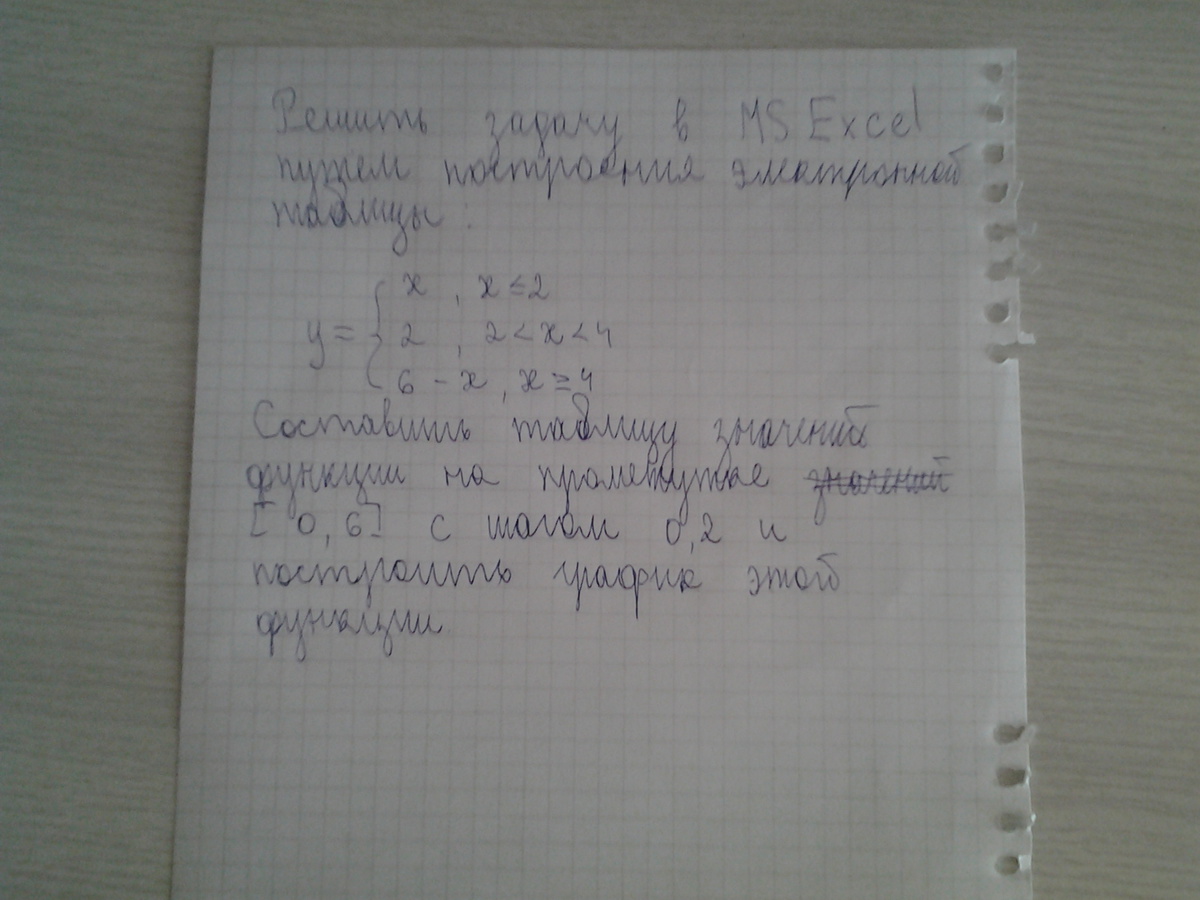 Решить задачу в MS Excel
путем построения электронной
таблицы:
y = { x , x ≤ 2
2 , 2 < x < 4
6 - x , x ≥ 4
Составить таблицу значений
функции на промежутке значений
[ 0, 6] с шагом 0,2 и
построить график этой
функции.